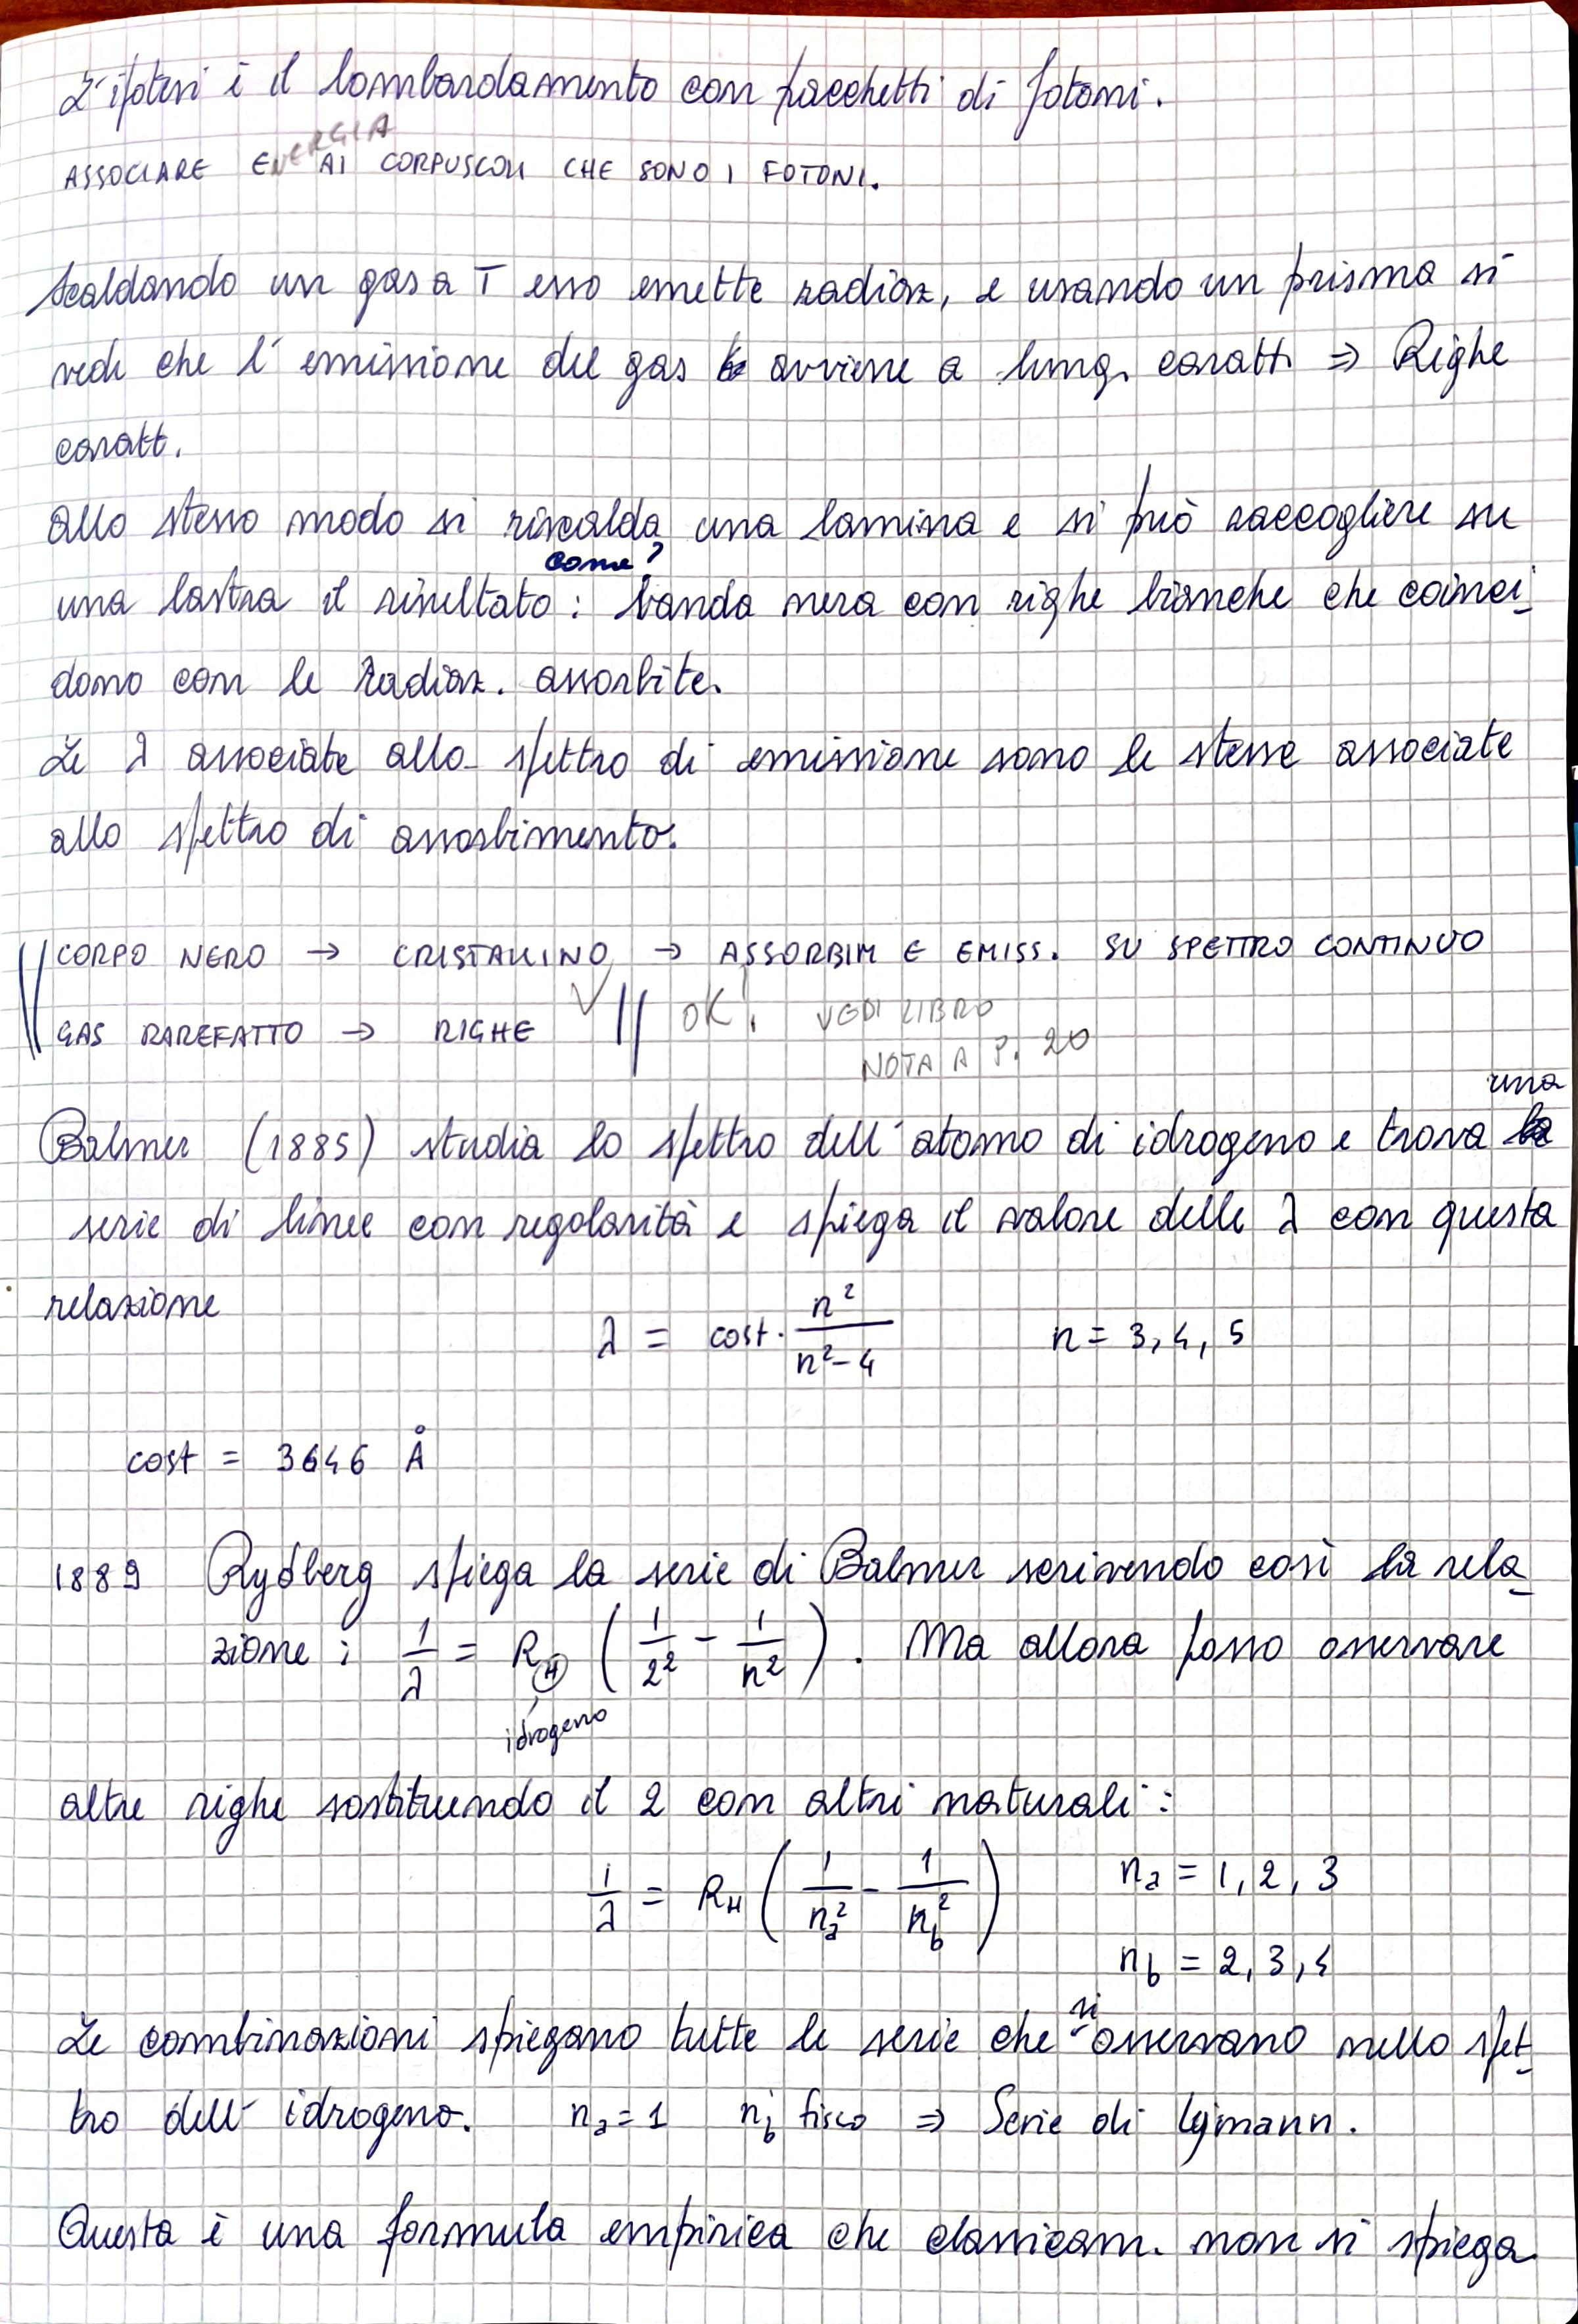 L'ipotesi è il bombardamento con pacchetti di fotoni.
ENERGIA
ASSOCIARE AI CORPUSCOLI CHE SONO I FOTONI.
Scaldando un gas a T esso emette radiaz, e usando un prisma si
vede che l'emissione del gas avviene a lung. caratt. ⇒ Righe
caratt.
Allo stesso modo si riscalda una lamina e si può raccogliere su
come?
una lastra il risultato: banda nera con righe bianche che coinci-
dono con le radiaz. assorbite.
Le λ associate allo spettro di emissione sono le stesse associate
allo spettro di assorbimento.
CORPO NERO → CRISTALLINO → ASSORBIM E EMISS. SU SPETTRO CONTINUO
GAS RAREFATTO → RIGHE || OK! VEDI LIBRO
NOTA A P. 20
una
Balmer (1885) studia lo spettro dell'atomo di idrogeno e trova
serie di linee con regolarità e spiega il valore delle λ con questa
relazione
λ = cost · n²/(n²-4) n = 3, 4, 5
cost = 3646 Å
1889 Rydberg spiega la serie di Balmer scrivendo così la rela-
zione: 1/λ = R_H (1/2² - 1/n²). Ma allora posso osservare
idrogeno
altre righe sostituendo il 2 con altri naturali:
1/λ = R_H (1/n_a² - 1/n_b²) n_a = 1, 2, 3
n_b = 2, 3, 4
si
Le combinazioni spiegano tutte le serie che osservano nello spet-
tro dell'idrogeno. n_a = 1 n_b fisso ⇒ Serie di Lymann.
Questa è una formula empirica che classicam. non si spiega